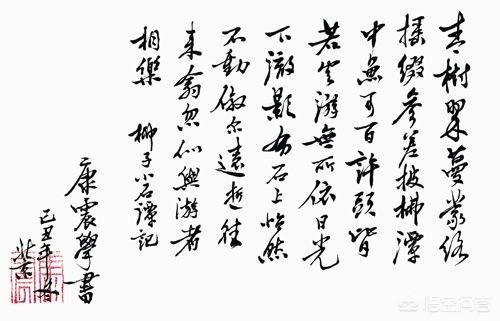 青樹翠蔓蒙络
摇缀参差披拂潭
中魚可百许頭皆
若空游無所依日光
下澈影布石上怡然
不動俶尔遠逝往
来翕忽似與游者
相樂 柳子小石潭記
康震學書
己丑年
悟空问答